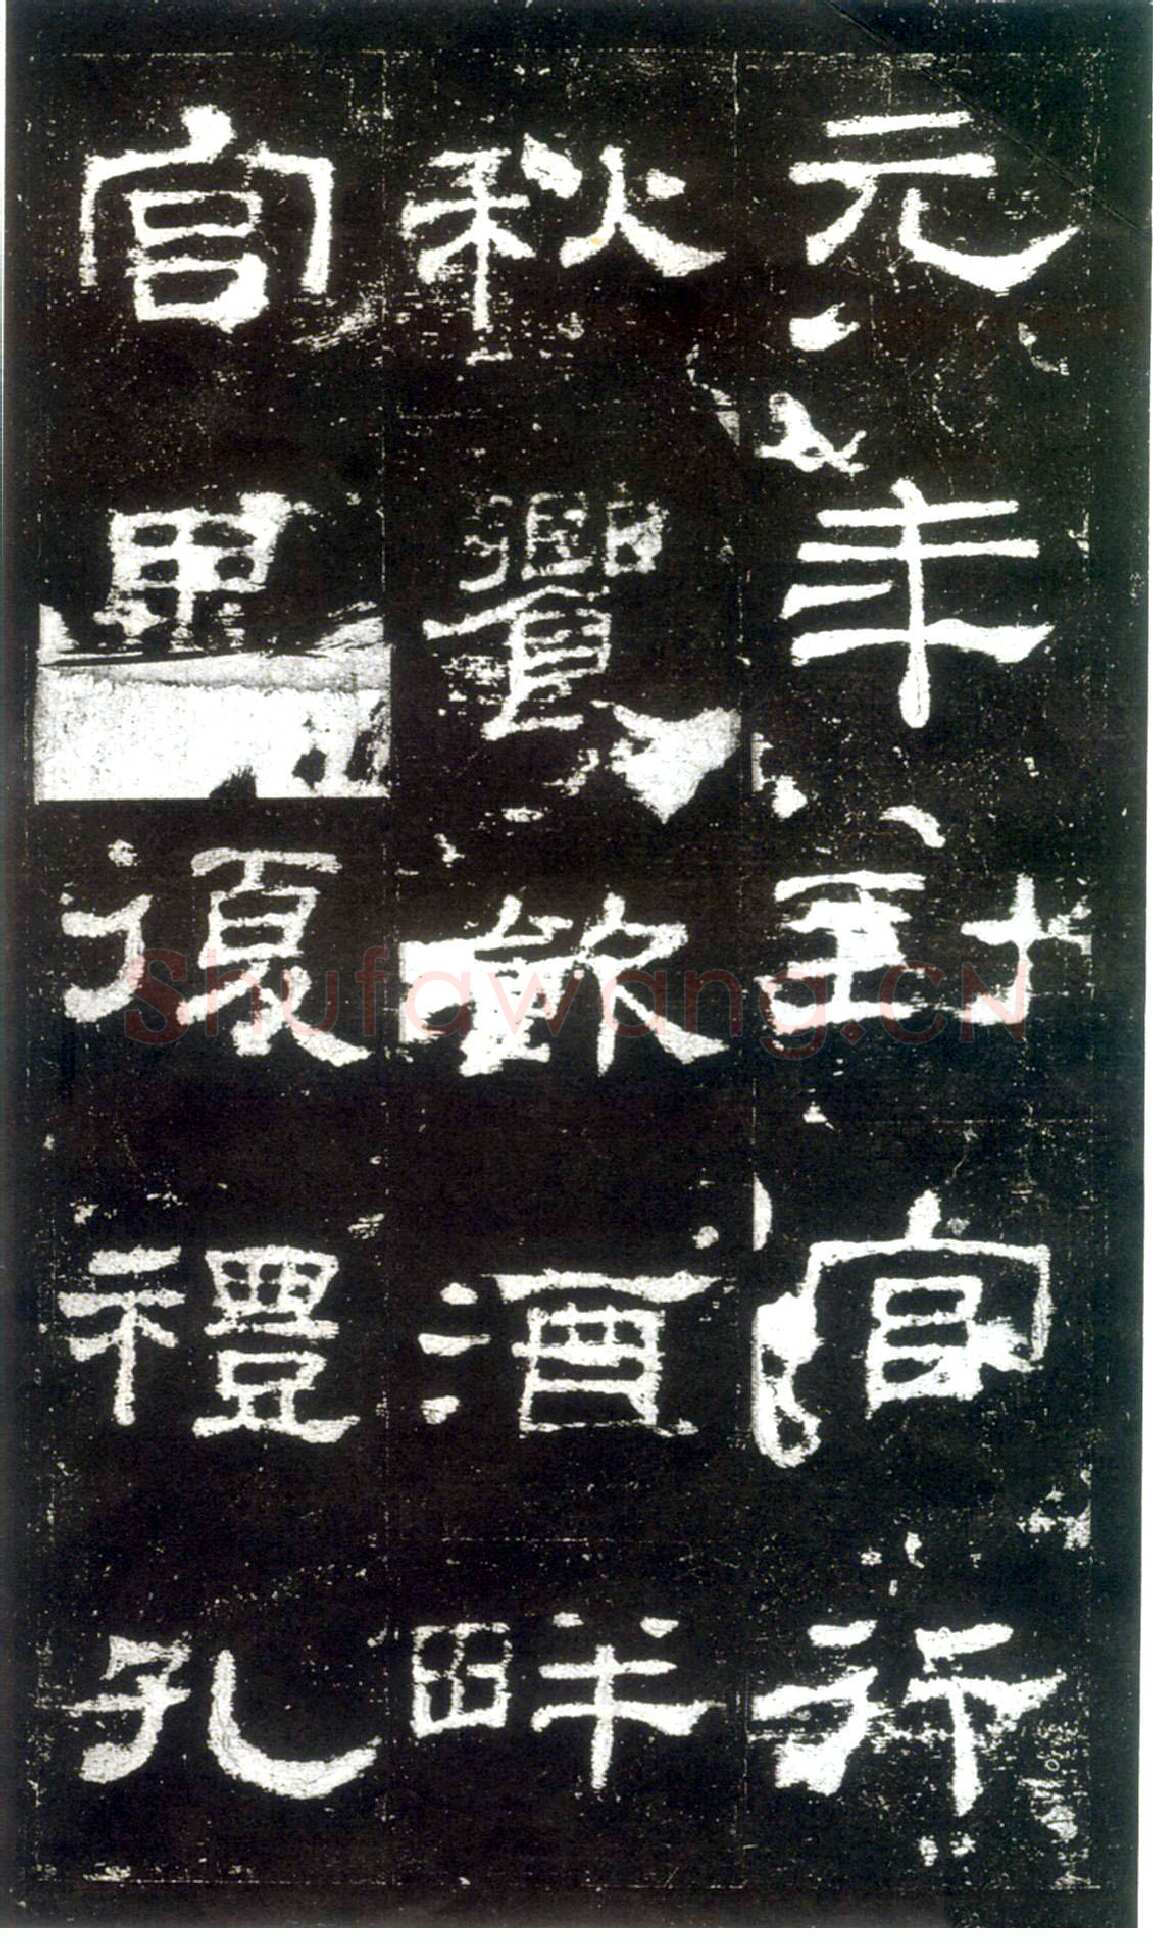 元年到官行
秋饗飲酒畔
宮畢復禮孔
Shufawang.CN